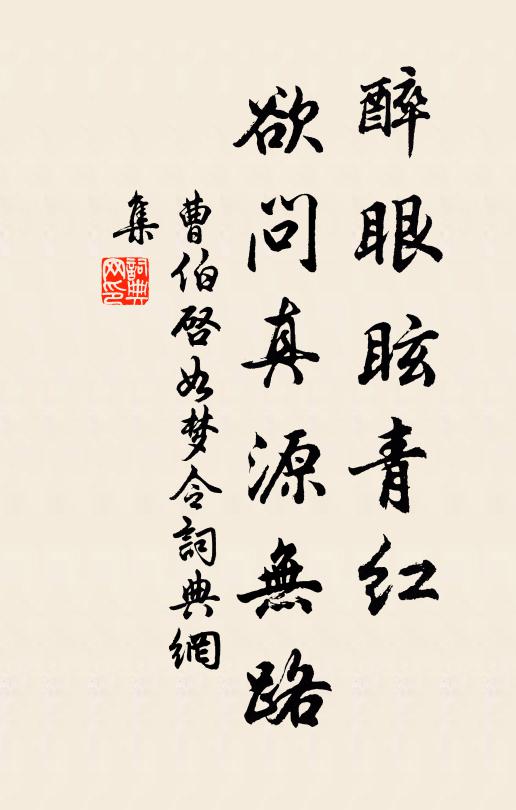 醉眼眩青红
欲问真源無路
曹伯启如梦令詞典網
集
詞典
网印